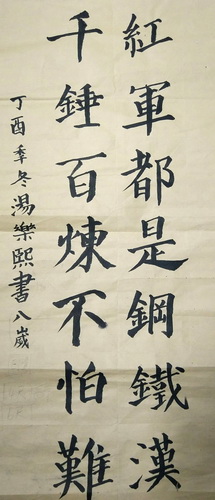 紅軍都是鋼鐵漢
千錘百煉不怕難
丁酉季冬湯樂熙書八歲